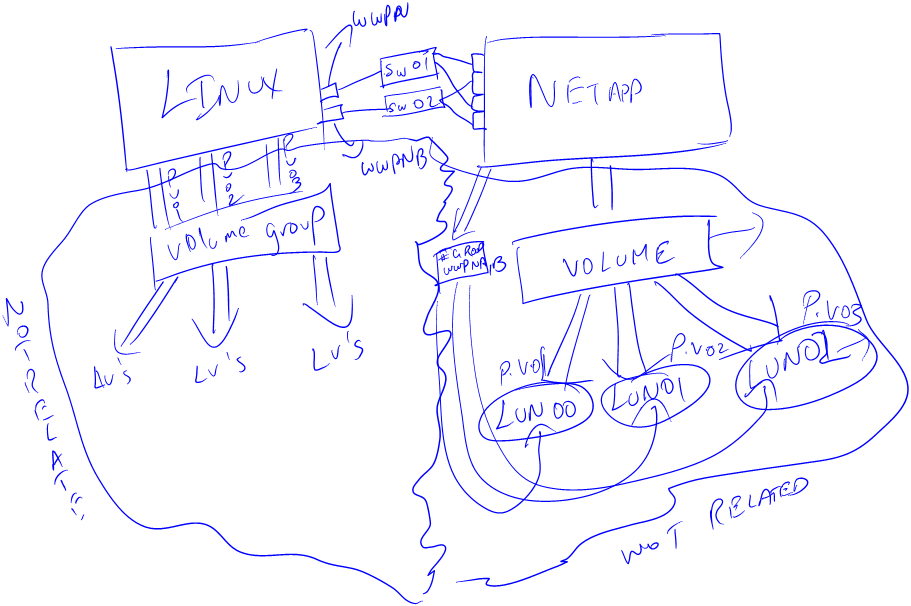 WWPN
LINUX
SW01
SW02
NETAPP
WWPNB
PV01
PV02
PV03
Volume group
LV's
LV's
LV's
NOT RELATED
WWPNA,B
VOLUME
P.V01
P.V02
P.V03
LUN00
LUN01
LUN02
NOT RELATED